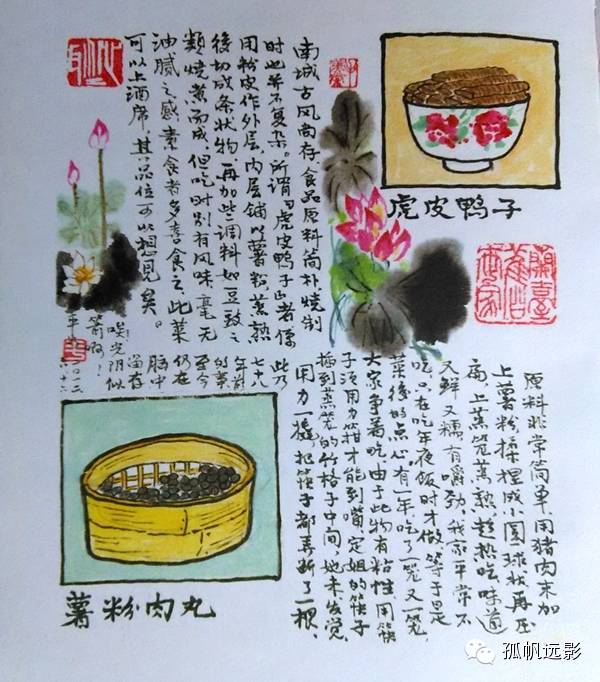 虎皮鸭子
南城古风尚存,食品原料简朴,烧制
时也并不复杂。所谓"虎皮鸭子"者
用粉皮作外层,内层铺以薯粉,蒸熟
後切成条状物,再加些调料如豆豉之
類燒煮而成,但吃时别有风味,毫无
油腻之感,素食者多喜食之,此菜
可以上酒席,其品位可以想见矣。
薯粉肉丸
原料非常简单,用猪肉末加
上薯粉揉捏成小圆球状,再压
扁上蒸笼蒸熟,趁热吃,味道
又鲜又糯,有嚼劲,我家平常不
吃,只在吃年夜饭时才做,等于是
菜後的点心,有一年吃了一笼又一笼,
大家争着吃,由于此物有粘性,用筷
子须用力箝才能到嘴,定姐的筷子
插到蒸笼的竹格子中间,她未发觉,
用力一撬,把筷子都弄断了一根,
此乃
七十八
年前
的事
至今
仍在
脑中
留存
唉光阴似
箭呀!
孤帆远影